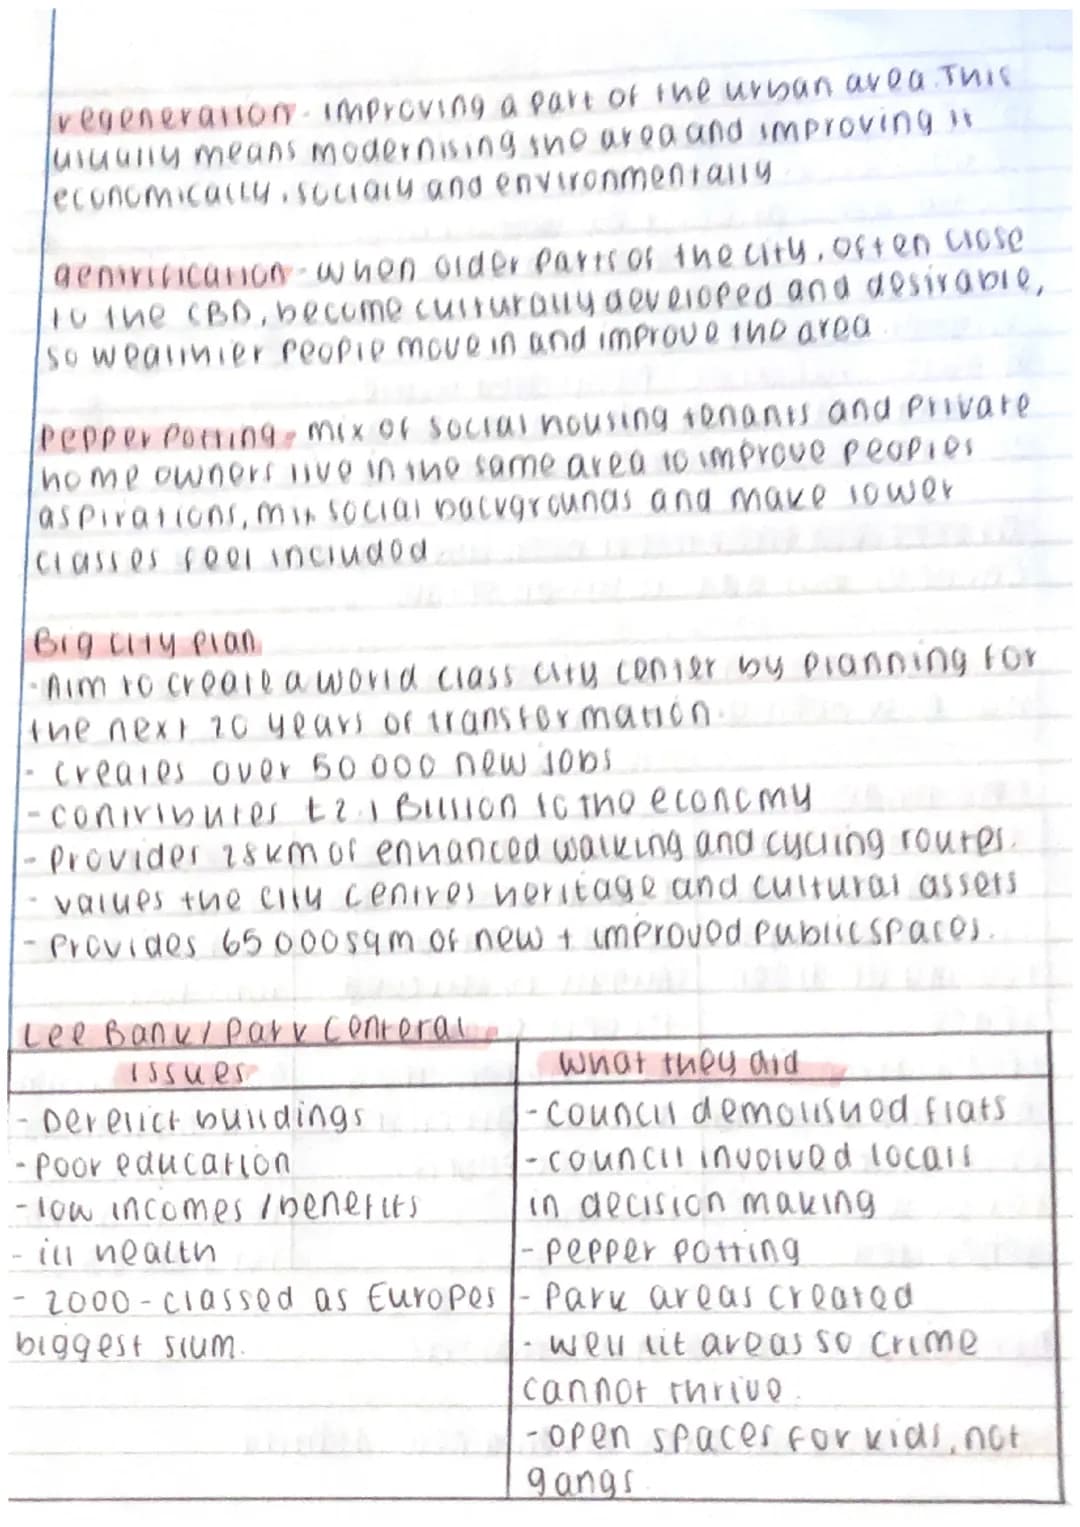 regeneration - improving a part of the urban area. This
usually means modernising the area and improving it
economically, socialy and environmentally
gentrification - when older parts of the city, often close
to the CBD, become culturally developed and desirable,
so wealthier people move in and improve the area.
Pepper Potting - mix of social housing tenants and private
home owners live in the same area to improve peoples
aspirations, mix social backgrounds and make lower
classes feel included
Big City Plan
- Aim to create a world class city center by planning for
the next 20 years of transformation.
- creates over 50 000 new jobs
- contributes £2.1 Billion to the economy
- Provides 28km of enhanced walking and cycling routes.
- values the city centres heritage and cultural assets
- Provides 65 000sqm of new + improved public spaces.
Lee Bank / Park Centeral
Issues
- Derelict buildings
- Poor education
- low incomes / benefits
- ill health
- 2000 - classed as Europes
biggest slum.
What they did
- council demolished flats
- council involved locals
in decision making
- Pepper potting
- Park areas created
- well lit areas so crime
cannot thrive.
- open spaces for kids, not
gangs.